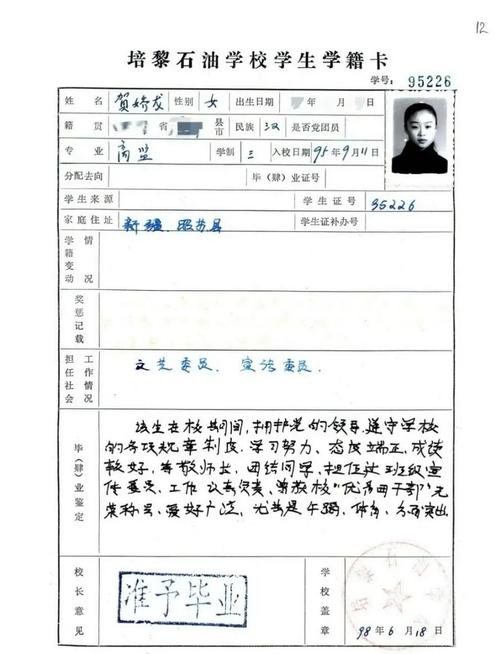 12
培黎石油学校学生学籍卡
学号: 95226
姓名 贺娇龙 性别 女 出生日期 年 月
籍贯 省 县市 民族 汉 是否党团员
专业 商业 学制 三 入校日期 95年9月11
分配去向 毕(肄)业证号
学生来源 学生证号 95226
家庭住址 新疆昭苏县 学生证补办号
学籍变动情况
奖惩记载
担任社会工作情况 文艺委员、宣传委员.
毕(肄)业鉴定
该生在校其间,拥护党的领导,遵守学校
的各项规章制度.学习努力、态度端正,成绩
较好,尊敬师长,团结同学,担任过班级宣
传委员,工作认真负责,曾获校"优秀团干部"光
荣称号.爱好广泛,尤其是 体育、方面突出
校长意见 准予毕业 学校盖章 98年6月18日